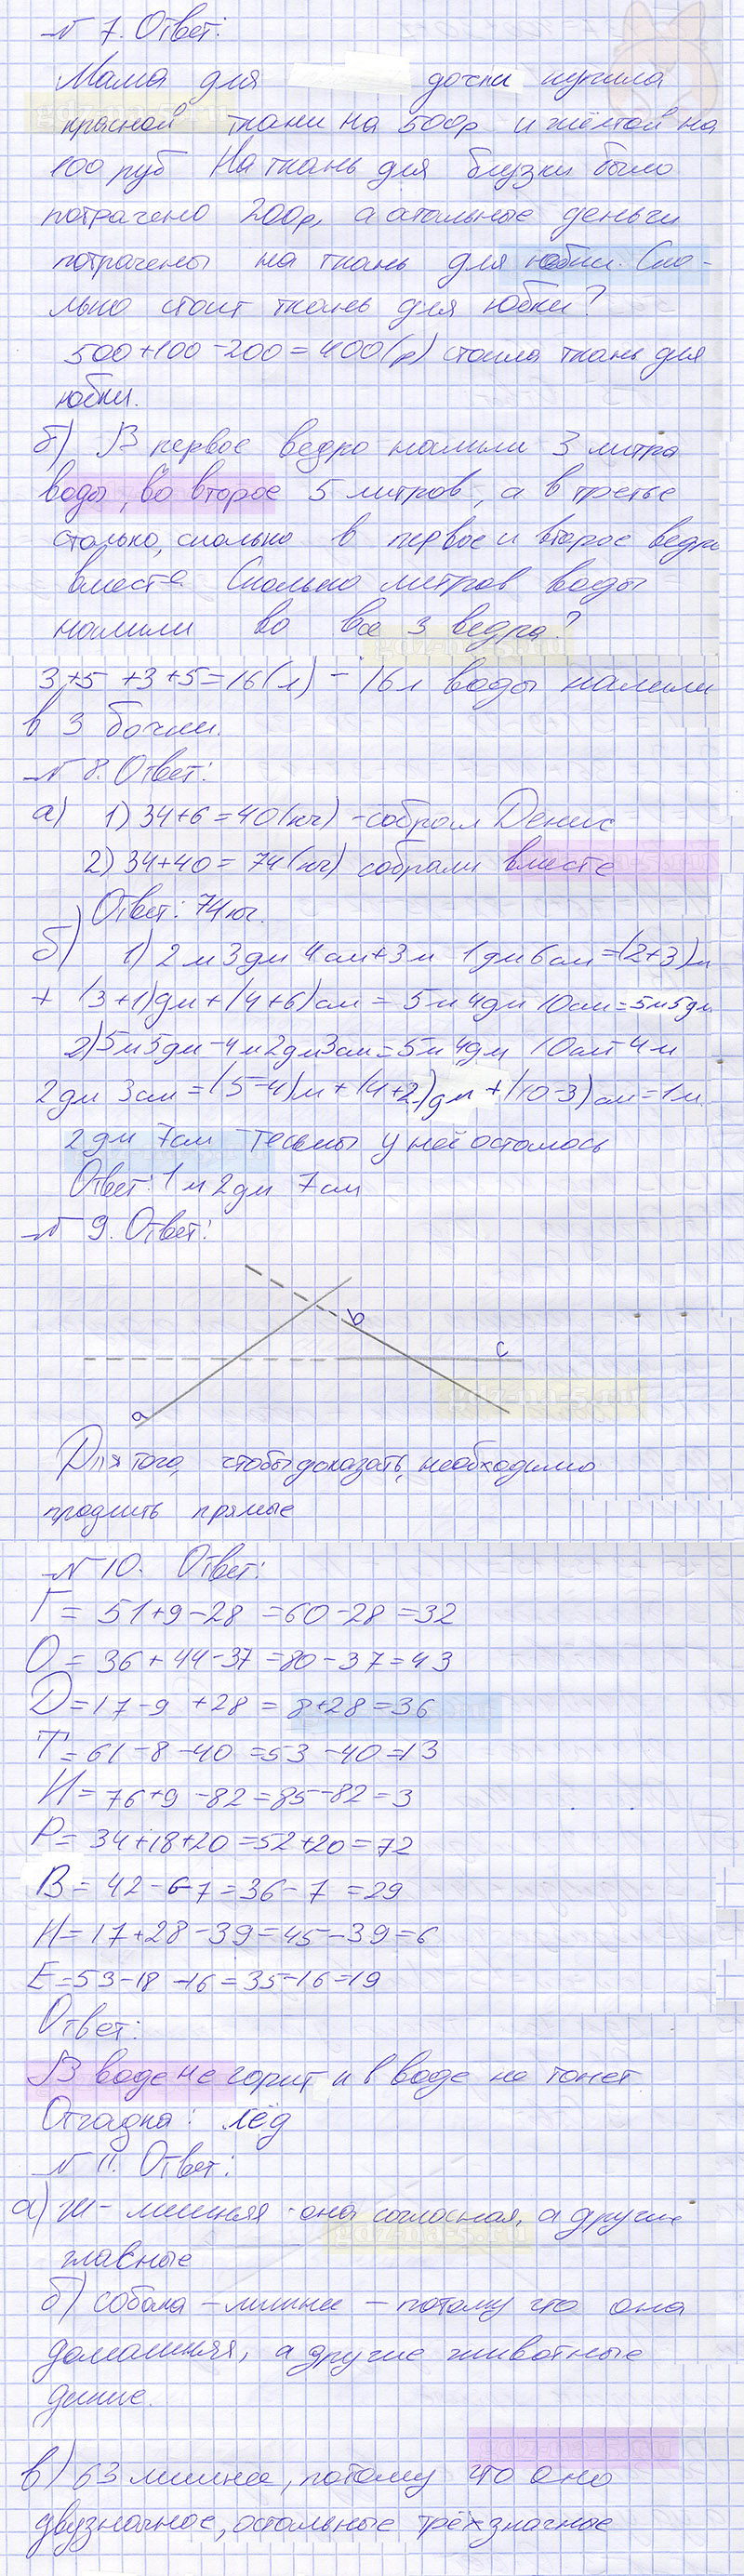 N 7. Ответ:
Мама для дочки купила
красной ткани на 500р и жёлтой на
100 руб На ткань для блузки было
потрачено 200р, а остальные деньги
потрачены на ткань для юбки. Ско-
лько стоит ткань для юбки?
500+100-200=400(р) стоила ткань для
юбки.
б) В первое ведро налили 3 литра
воды, во второе 5 литров, а в третье
столько, сколько в первое и второе ведро
вместе Сколько литров воды
налили во все 3 ведра?
3+5+3+5=16(л) - 16л воды налили
в 3 бочки.
N 8. Ответ:
а) 1) 34+6=40(кг) - собрал Денис
2) 34+40=74(кг) собрали вместе
Ответ: 74кг.
б) 1) 2м 3дм 4см+3м 1дм 6см=(2+3)м
+ (3+1)дм+(4+6)см = 5м 4дм 10см=5м5дм
2)5м5дм-4м2дм3см=5м 4дм 10см-4м
2дм 3см=(5-4)м+(4+2)дм+(10-3)см=1м
2дм 7см тесьмы у неё осталось
Ответ: 1м 2дм 7см
N 9. Ответ:
b
c
a
Для того, чтобы доказать, необходимо
продлить прямые
N 10. Ответ:
Г= 51+9-28=60-28=32
О= 36+44-37=80-37=43
D=17-9+28=8+28=36
Т=61-8-40=53-40=13
И=76+9-82=85-82=3
Р=34+18+20=52+20=72
В=42-6-7=36-7=29
Н=17+28-39=45-39=6
Е=53-18-16=35-16=19
Ответ:
В воде не горит и в воде не тонет
Отгадка: лёд
N 11. Ответ:
а) Ш- лишняя - она согласная, а другие
главные
б) собака - лишнее - потому что она
домашняя, а другие животные
дикие.
в) 63 лишнее, потому что оно
двузначное, остальные трёхзначное